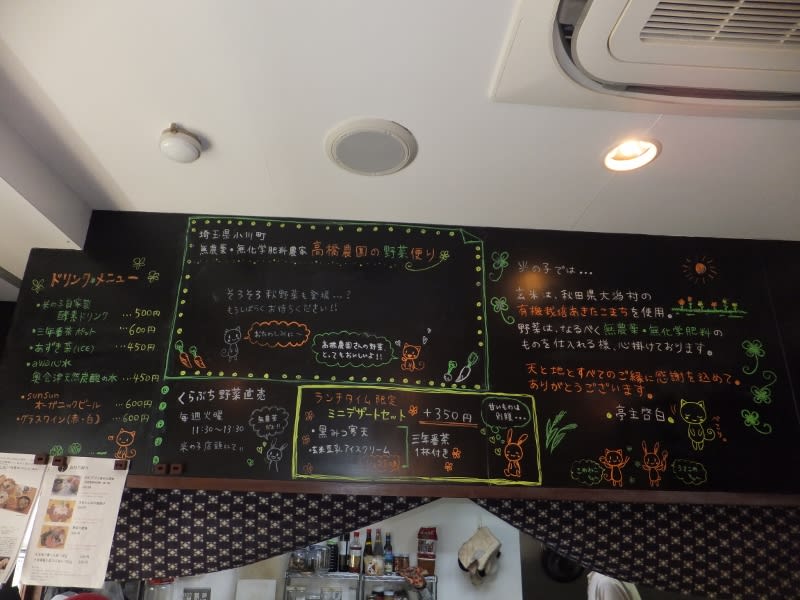 ドリンク・メニュー
・米の子自家製
酵素ドリンク ...500円
・三年番茶ポット ...600円
・あずき茶(ICE) ...450円
奥会津天然炭酸の水 ...450円
・sunsun
オーガニックビール ...600円
・グラスワイン(赤・白) ...600円
埼玉県小川町
無農薬・無化学肥料農家 高橋農園の野菜便り
そろそろ秋野菜も登場...?
もうしばらくお待ちください!!
おたのしみに…
高橋農園さんの野菜
とってもおいしいよ!!
くらぶち野菜直売
毎週火曜
11:30~13:30
米の子店頭にて!!
無農薬
だよ!!
ランチタイム限定
ミニデザートセット +350円
・黒みつ寒天
・玄米豆乳アイスクリーム
三年番茶
1杯付き
甘いものは
別腹…
米の子では...
玄米は、秋田県大潟村の
有機栽培あきたこまちを使用。
野菜は、なるべく無農薬・無化学肥料の
ものを仕入れる様、心掛けております。
天と地とすべてのご縁に感謝を込めて。
ありがとうございます。
亭主啓白
ぺこり。